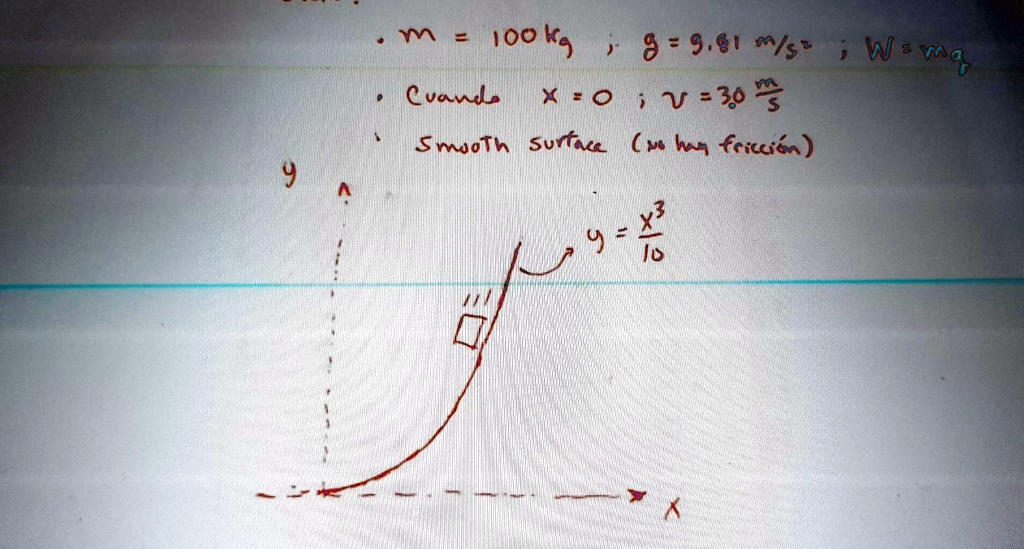 • m = 100 kg ; g = 9.81 m/s² ; W = mg
• Cuando x = 0 ; v = 30 m/s
• Smooth surface (no hay fricción)
y
y = x³/10
x